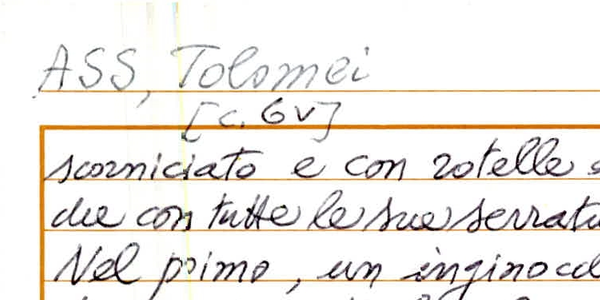 ASS, Tolomei
[c. 6v]
scorniciato e con rotelle
due con tutte le sue serratu
Nel primo, un inginocch